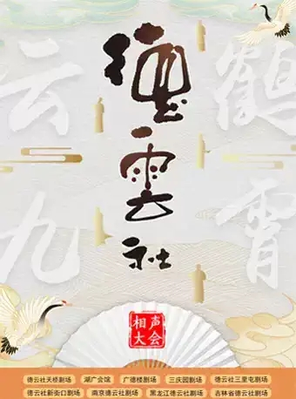 德雲社
云
九
鹤
霄
相声
大会
德云社天桥剧场 湖广会馆 广德楼剧场 三庆园剧场 德云社三里屯剧场
德云社新街口剧场 南京德云社剧场 黑龙江德云社剧场 吉林省德云社剧场